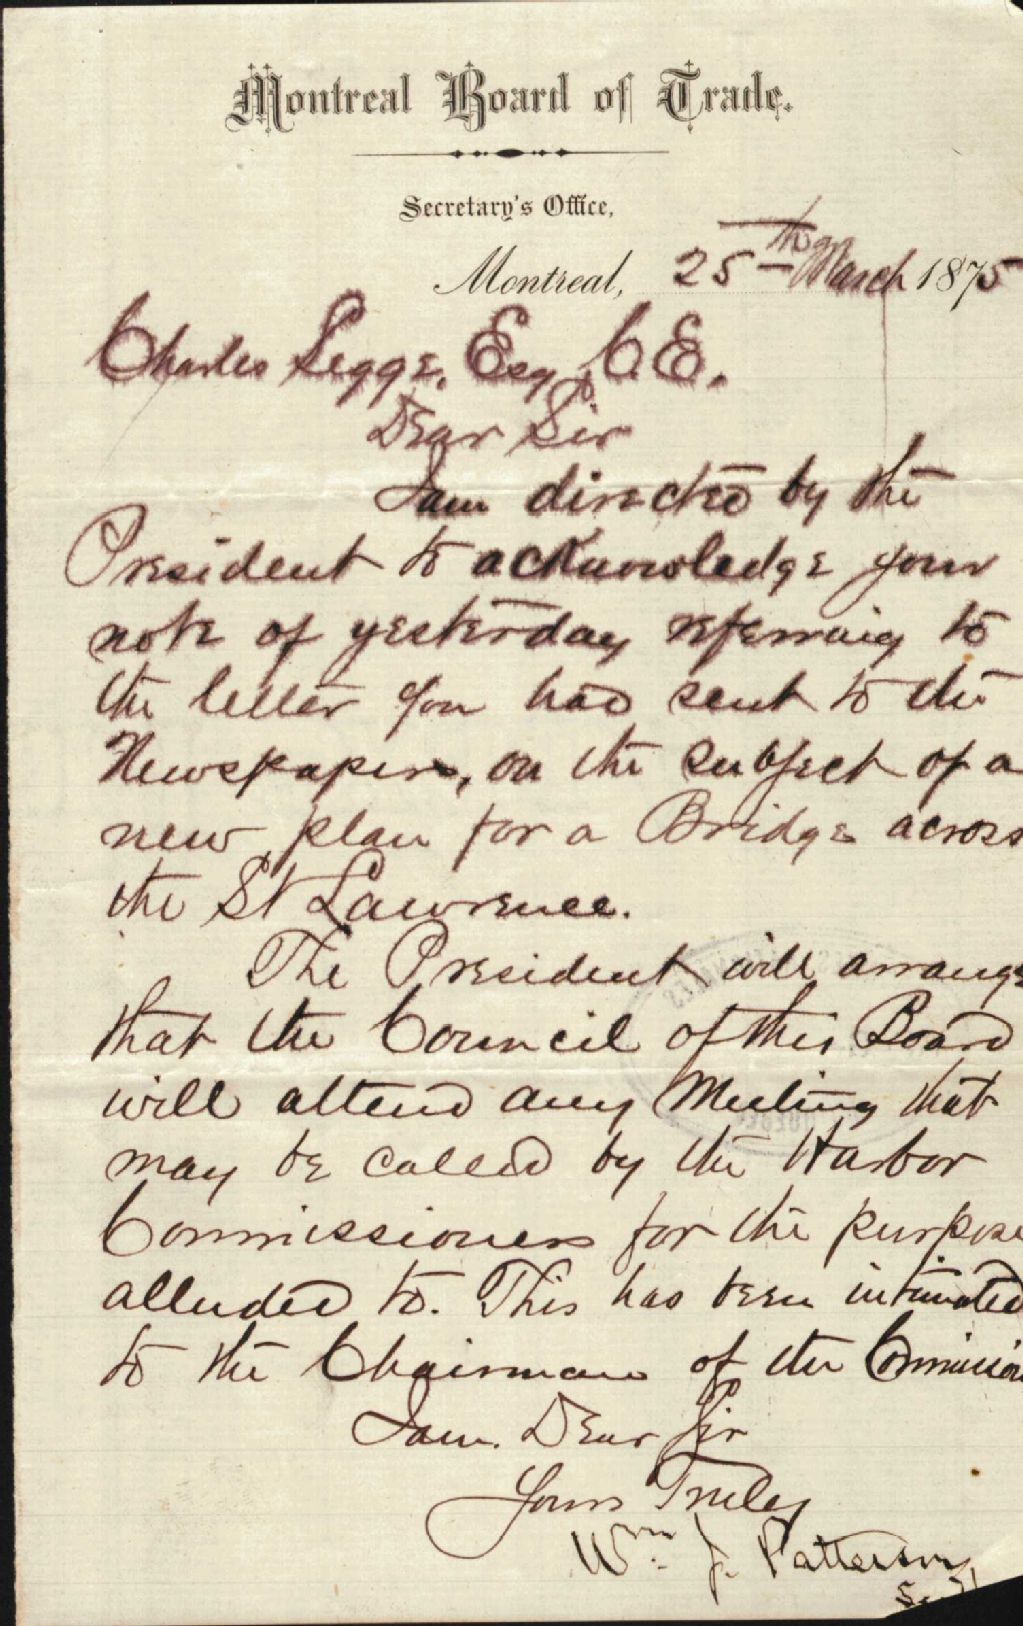 Montreal Board of Trade.
Secretary's Office,
Montreal, 25th March 1875
Charles Legge, Esq, C.E.
Dear Sir
I am directed by the
President to acknowledge your
note of yesterday referring to
the letter you had sent to the
Newspapers, on the subject of a
new plan for a Bridge across
the St Lawrence.
The President will arrange
that the Council of this Board
will attend any Meeting that
may be called by the Harbor
Commissioners for the purpose
alluded to. This has been intimated
to the Chairman of the Commission
I am, Dear Sir
Yours Truly
Wm. J. Patterson